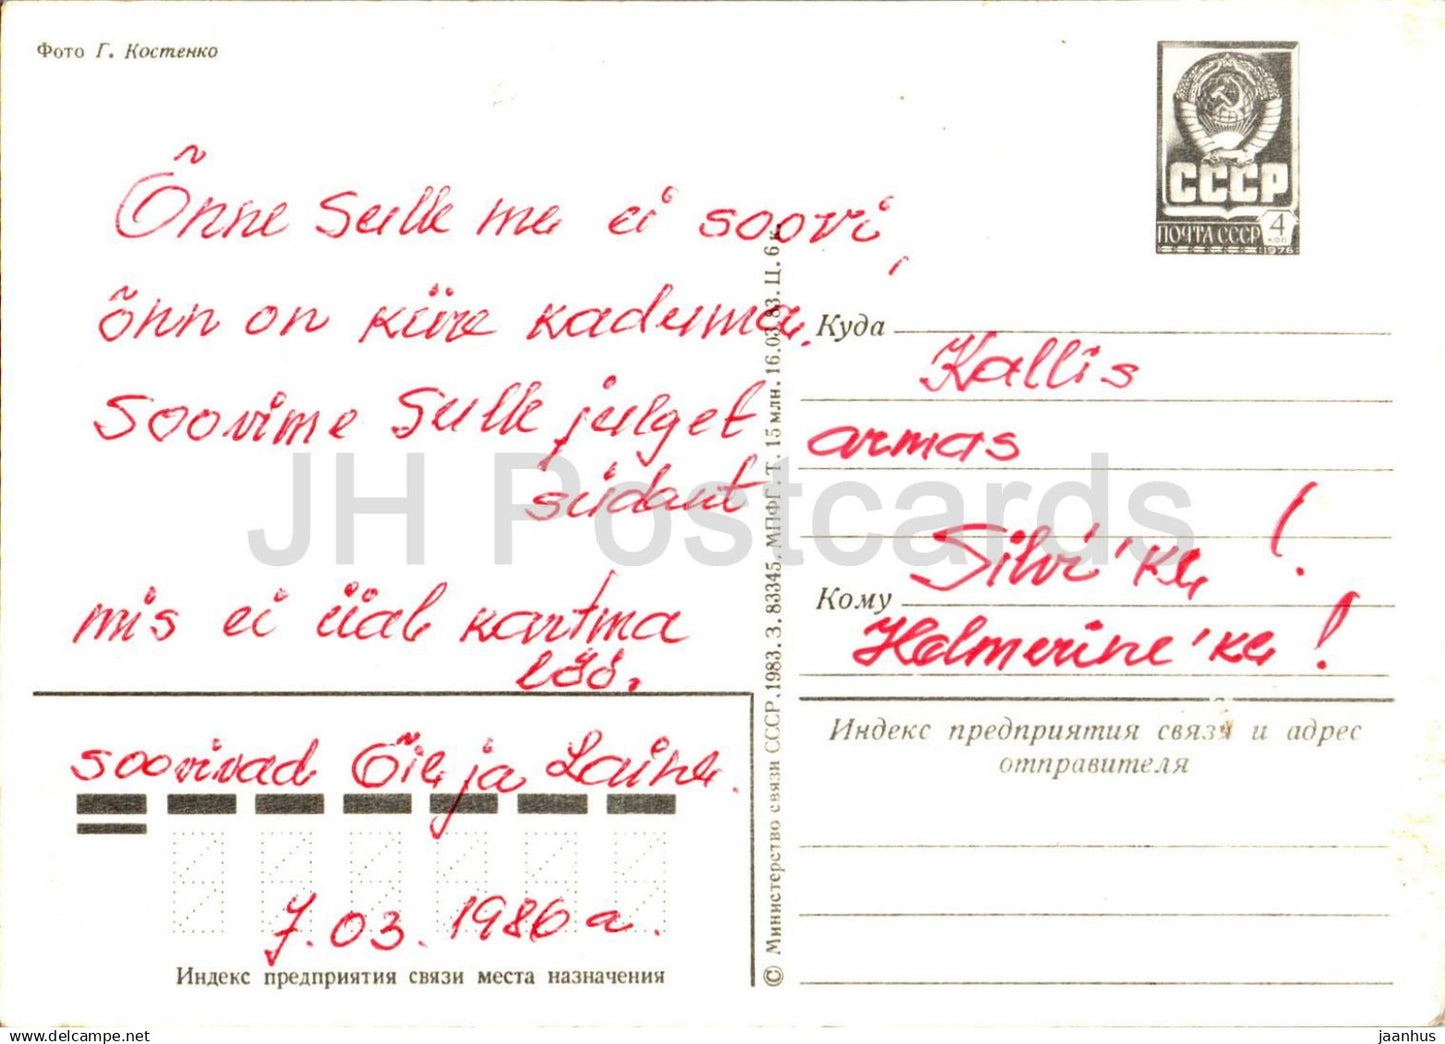 Фото Г. Костенко
СССР
ПОЧТА СССР 4 КОП
1976
Õnne Sulle me ei soovi,
õnn on kiire kaduma.
Soovime Sulle julget
südant
mis ei iial kartma
löö.
soovivad Õie ja Laine.
7.03.1986 a.
Индекс предприятия связи места назначения
© Министерство связи СССР, 1983. З. 83345. МПФГ. Т. 15 млн. 16.03.83. Ц. 6 к.
Куда
Kallis
armas
Silvi'ke !
Кому
Helmerine'ke !
Индекс предприятия связи и адрес
отправителя
JH Postcards
jaanhus © www.delcampe.net